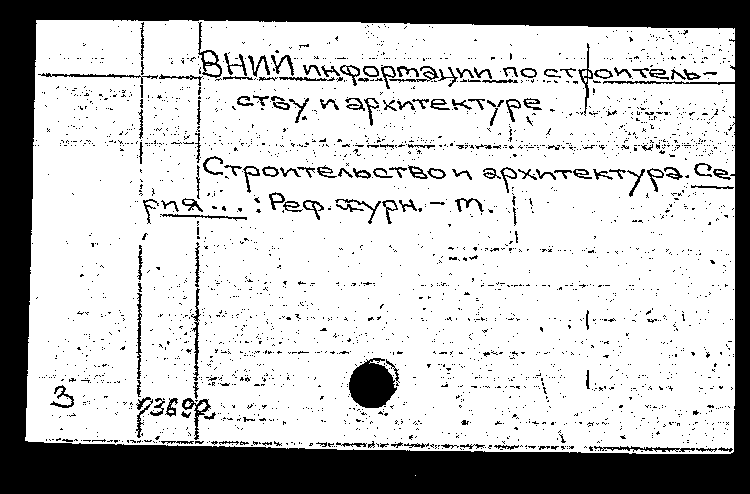 ВНИИ информации по строитель-
ству и архитектуре.
Строительство и архитектура. Се-
рия ... : Реф. журн. - м.
З 73692